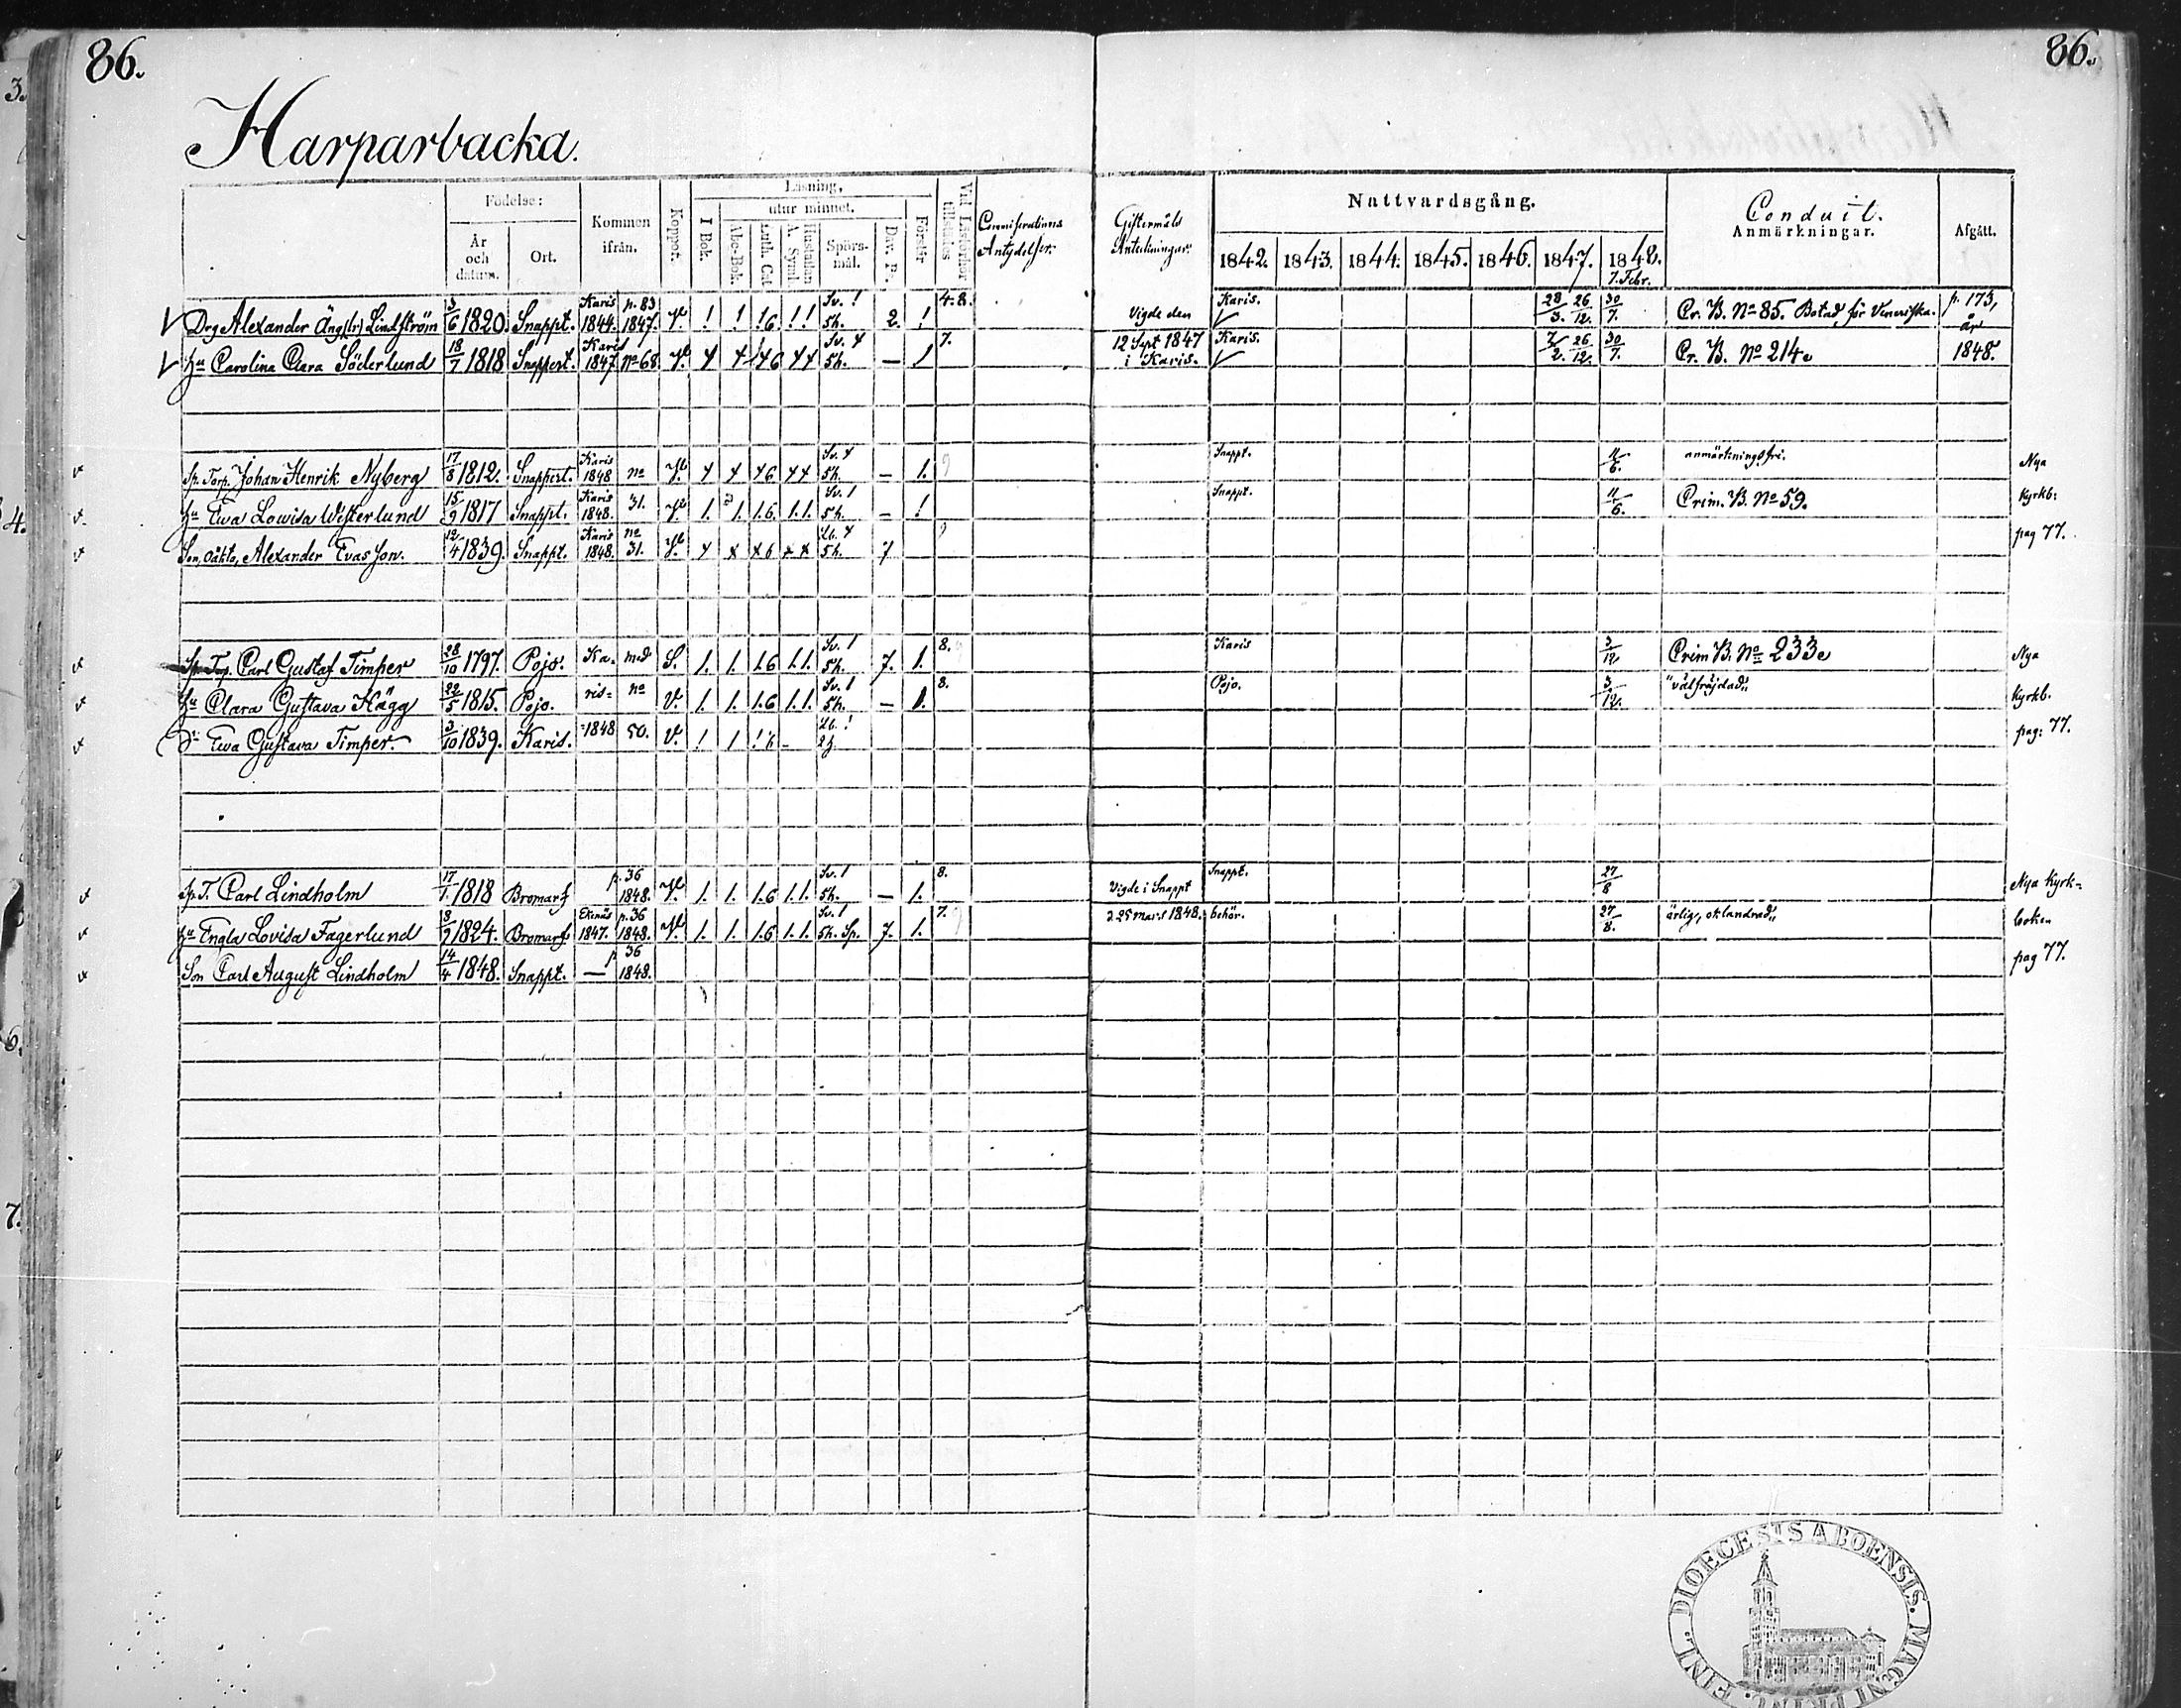 86.
86.
Harparbacka.
Födelse:
År och datum.
Ort.
Kommen ifrån.
Koppor.
Läsning,
utur minnet.
I Bok.
Abc-Bok.
Luth. Cat.
A. Symb.
Hustaflan
Spörsmål.
Dav. Ps.
Förstår
Vid Läsförhör tillstädes
Giftermåls Anteckningar.
Nattvardsgång.
1842. 1843. 1844. 1845. 1846. 1847. 1848.
7. Febr.
Conduit.
Anmärkningar.
Afgått.
Drg Alexander Lindström 3/6 1820. Snappt. Karis 1844. p. 83 1847. V. ! ! !.6 ! ! Sv. ! 5h. 2. ! 4.8. Vigde den Karis. 28/3. 26/12. 30/7. Cr. B. No 85. Botad för Veneriska. p. 173,
Hu Carolina Clara Söderlund 18/7 1818 Snappert. Karis 1847 No 68. V. 5h. — 7. 12 Sept 1847 i Karis. Karis. 2/2. 26/12. 30/7. Cr. B. No 214. år 1848.
Sp. Torp. Johan Henrik Nyberg 17/8 1812. Snappert. Karis 1848 no V. Sv. 4 5h. — 1. 9 Snappt. 11/6. anmärkningsfri. Nya
Hu Ewa Lowisa Westerlund 15/9 1817 Snappt. Karis 1848. 31. V. 1. 1. 1.6. 1.1. Sv. 1 5h. — ! Snappt. 11/6. Crim. B. No 59. Kyrkb:
Son, oäkta, Alexander Evasson. 12/4 1839. Snappt. Karis 1848. no 31. V. 5h. 7 9 pag 77.
Sp. Torp. Carl Gustaf Timper 28/10 1797. Pojo. Ka- med S. 1. 1. 1.6 1.1. Sv. 1 5h. 7. 1. 8. Karis 3/12 Crim B. No 233. Nya
Hu Clara Gustava Hägg 22/5 1815. Pojo. ris- no V. 1. 1. 1.6 1.1. Sv. 1 5h. — 1. 8. Pojo. 3/12. "välfräjdad" Kyrkb.
Dr Ewa Gustava Timper. 3/10 1839. Karis. 1848 50. V. ! 1 !.6 - pag: 77.
Sp. T. Carl Lindholm 17/1. 1818 Bromarf p. 36 1848. V. 1. 1. 1.6 1.1. Sv. 1 5h. — 1. 8. Vigde i Snappt Snappt. 27/8 Nya Kyrk-
Hu Engla Lovisa Fagerlund 8/9 1824. Bromarf Ekenäs 1847. p. 36 1848. V. 1. 1. 1.6 1.1. Sv. 1 5h. Sp. 7. 1. 7. d 25 Mars 1848. behör. 27/8. ärlig, oklandrad" boken
Son Carl August Lindholm 14/4 1848. Snappt. — p 36 1848. pag 77.
DIOECESIS ABOENSIS. MAGNI PRINC. FINL.
3.
4.
6.
7.